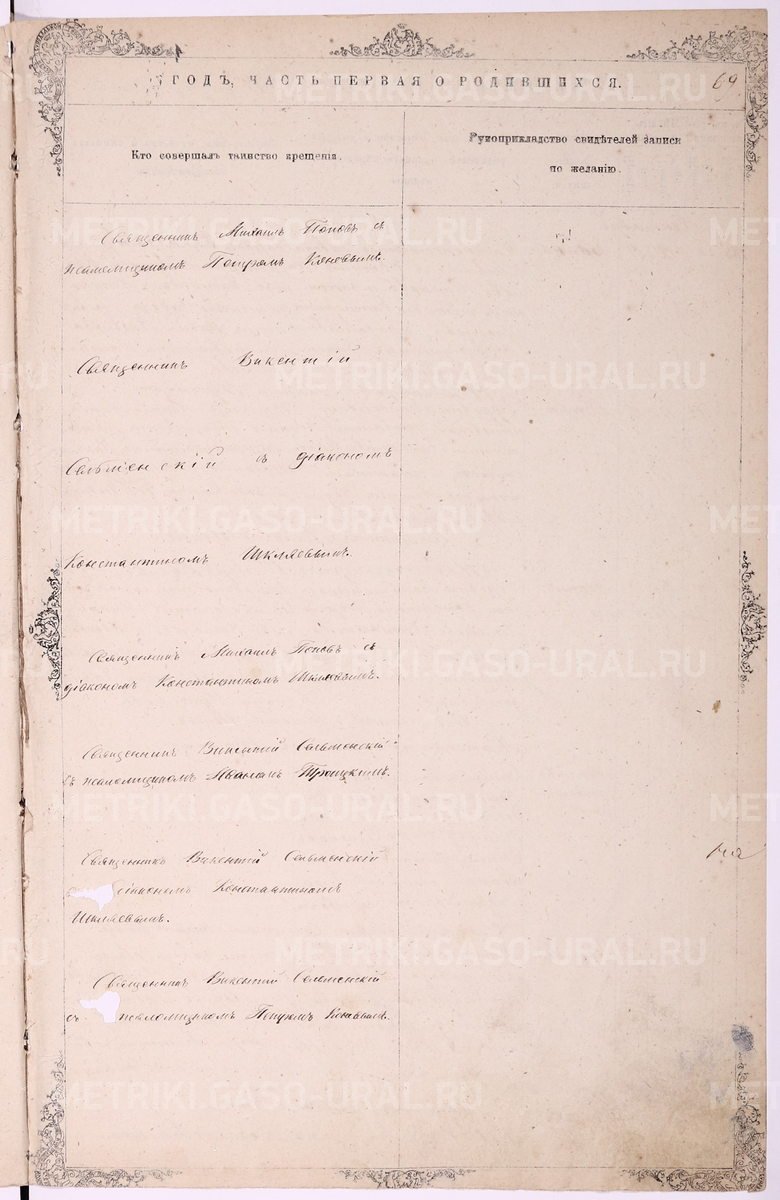 ГОДЪ, ЧАСТЬ ПЕРВАЯ О РОДИВШИХСЯ.
69
Кто совершалъ таинство крещенія.
Рукоприкладство свидѣтелей записи
по желанію.
Священникъ Михаилъ Поповъ съ
псаломщикомъ Петромъ
Священникъ Викентій
Сельменскій съ діакономъ
Константиномъ Шкляевымъ.
Священникъ Михаилъ Поповъ съ
діакономъ Константиномъ Шкляевымъ.
Священникъ Викентій Сельменскій
съ псаломщикомъ Иваномъ Троицкимъ.
Священникъ Викентій Сельменскій
діакономъ Константиномъ
Шкляевымъ.
Священникъ Викентій Сельменскій
съ псаломщикомъ Петромъ
METRIKI.GASO-URAL.RU